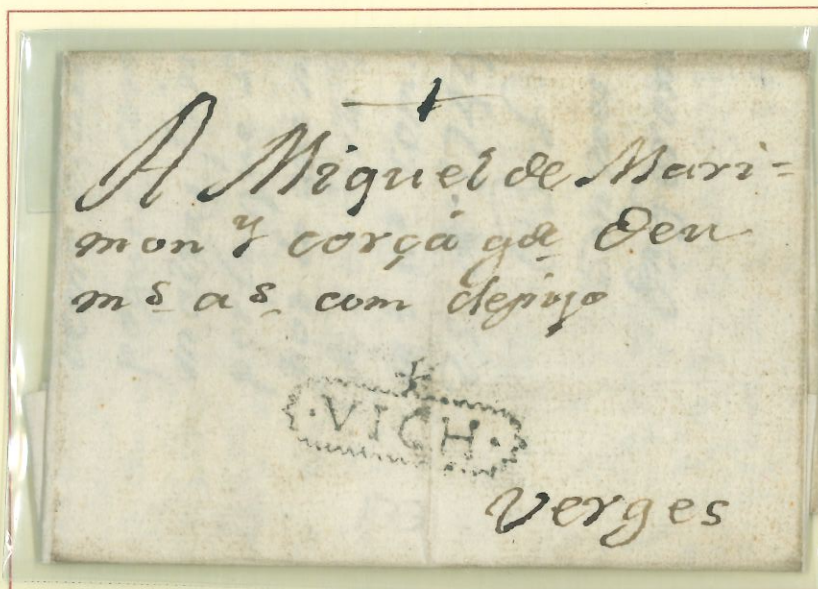 A Miguel de Mari=
mon y corçà gᵈᵉ Deu
mˢ aˢ com desijo
·VICH·
Verges